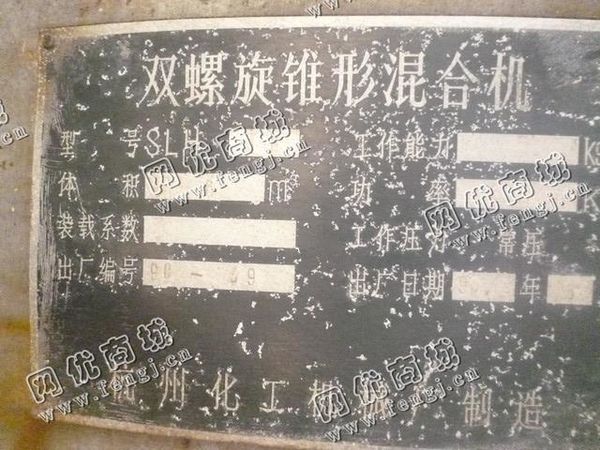 双螺旋锥形混合机
型 号 SLH 工作能力 KG
体 积 m³ 功 率 K
装载系数 工作压力 常压
出厂编号 90-39 出厂日期 9 年
州化工机械厂制造
网优商城
www.fengj.com
网优商城
www.fengj.com
网优商城
www.fengj.com
网优商城
www.fengj.com
网优商城
www.fengj.com
网优商城
www.fengj.com